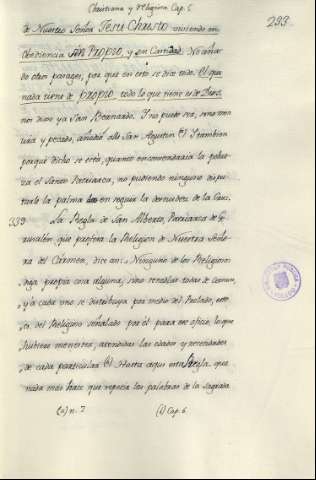 Christiana y Religiosa Cap. 6
293
de Nuestro Señor Jesu Christo viviendo en
obediencia sin Propio, y en Castidad. No aña-
do otros parages, por que en esto se dice todo. El que
nada tiene de propio, todo lo que tiene es de Dios,
nos dixo ya San Bernardo. Y no puede ser, sino men-
tira y pecado, añadio alli San Agustin (a) Y tambien
porque dicho se está, quanto encomendaria la pobre-
za el Santo Patriarca, no pudiendo ninguno dispu-
tarle la palma en seguir la desnudez de la Cruz.
339 La Regla de San Alberto, Patriarca de Je-
rusalén que profesa la Religion de Nuestra Seño-
ra del Carmen, dice asi: Ninguno de los Religiosos
diga propia cosa alguna; sino tenedlas todas de comun,
y à cada uno se distribuya por medio del Prelado, esto
es, del Religioso señalado por él para ese oficio, lo que
hubiere menester, atendidas las edades y necesidades
de cada particular (b) Hasta aqui esta Regla que
nada mas hace que repetir las palabras de la Sagrada
(a) n. 7 (b) Cap. 6